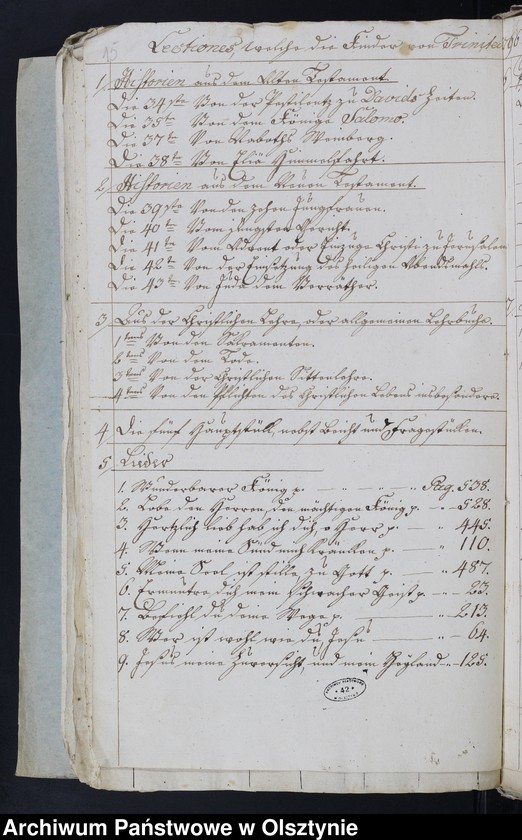 15
Lectiones, welche die Kinder von Trinitat
1, Historien aus dem Alten Testament.
Die 34ste Von der Pestilentz zu Davids Zeiten.
Die 35te Von dem Könige Salomo.
Die 37te Von Naboths Weinberg.
Die 38te Von Eliä Himmelfahrt.
2, Historien aus dem Neuen Testament.
Die 39ste Von den zehen Jungfrauen.
Die 40te Vom jüngsten Gericht.
Die 41te Vom Advent oder Einzuge Christi zu Jerusalem
Die 42te Von der Einsetzung des heiligen Abendmahls.
Die 43te Von Juda dem Verräther.
3, Aus der Christlichen Lehre, oder allgemeinen Lehrbuche.
1tens Von den Sakramenten.
2tens Von dem Tode.
3tens Von der Christlichen Sittenlehre.
4tens Von den Pflichten des Christlichen Lebens insbesondere.
4, Die fünf Hauptstück, nebst Beicht und Fragestücken.
5, Lieder
1. Wunderbarer König p. — " — " — " Pag. 538.
2. Lobe den Herren, den mächtigen König p. — " — 528.
3. Hertzlich lieb hab ich dich, o Herr p. — " 445.
4. Wenn meine Sünd mich kränken p. — " 110.
5. Meine Seel ist stille zu Gott p. — " 487.
6. Ermuntre dich mein schwacher Geist p. — " — 23.
7. Befiehl du deine Wege p. — " 213.
8. Wer ist wohl wie du, Jesu — " — 64.
9. Jesus meine Zuversicht, und mein Heyland — " — 125.
42
Archiwum Państwowe w Olsztynie